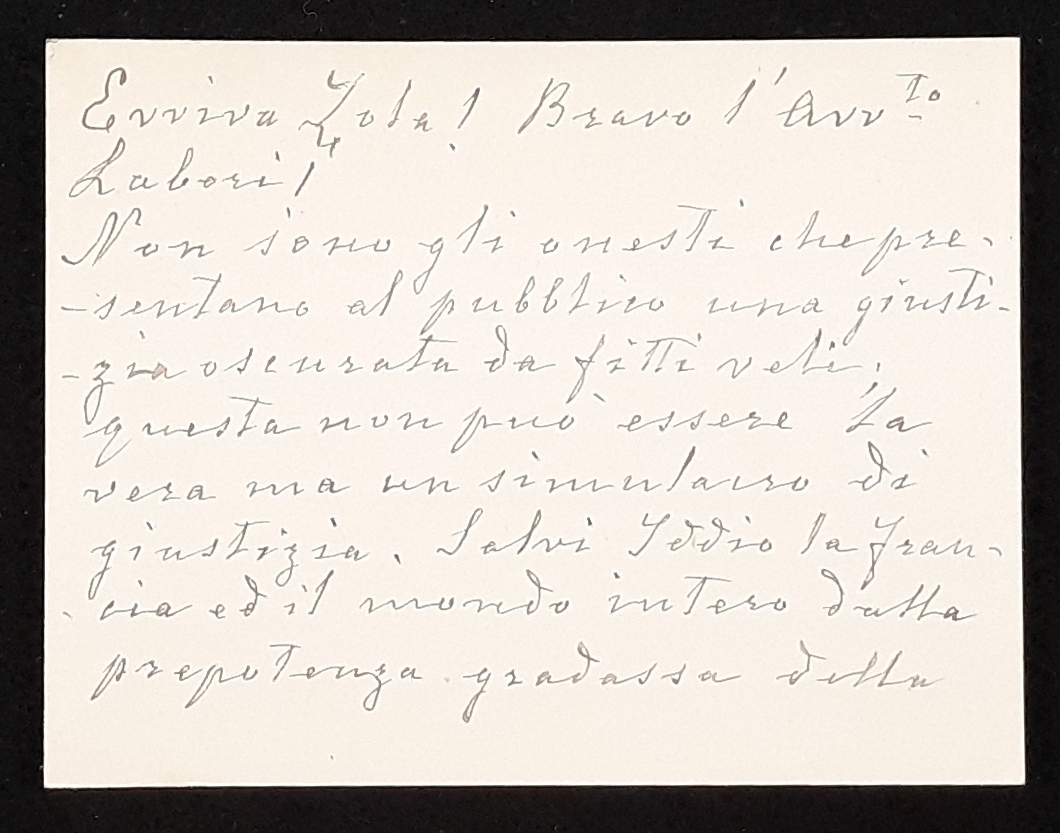 Evviva Zola! Bravo l'Avv.to
Labori!
Non sono gli onesti che pre-
-sentano al pubblico una giusti-
-zia oscurata da fitti veli.
questa non può essere la
vera ma un simulacro di
giustizia. Salvi Iddio la Fran-
cia ed il mondo intero dalla
prepotenza gradassa della